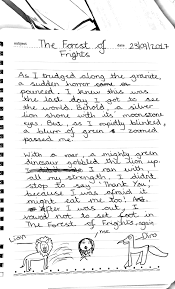 subject The Forest of date 23/9/2017
Frights
As I trudged along the granite,
a sudden horror came
pained. I knew this was
the last day I got to see
the world. Behold, a silver
lion shone with its moonstone
eyes. But, as I rapidly blinked
a blur of green zoomed
passed me.
With a roar, a mighty green
dinosaur gobbled the lion up.
I ran with
all my strength. I didn't
stop to say Thank You,
because I was afraid it
might eat me too! And.
After I was out, I
vowed not to set foot in
The Forest of Frights, again
Lion
me
Dino